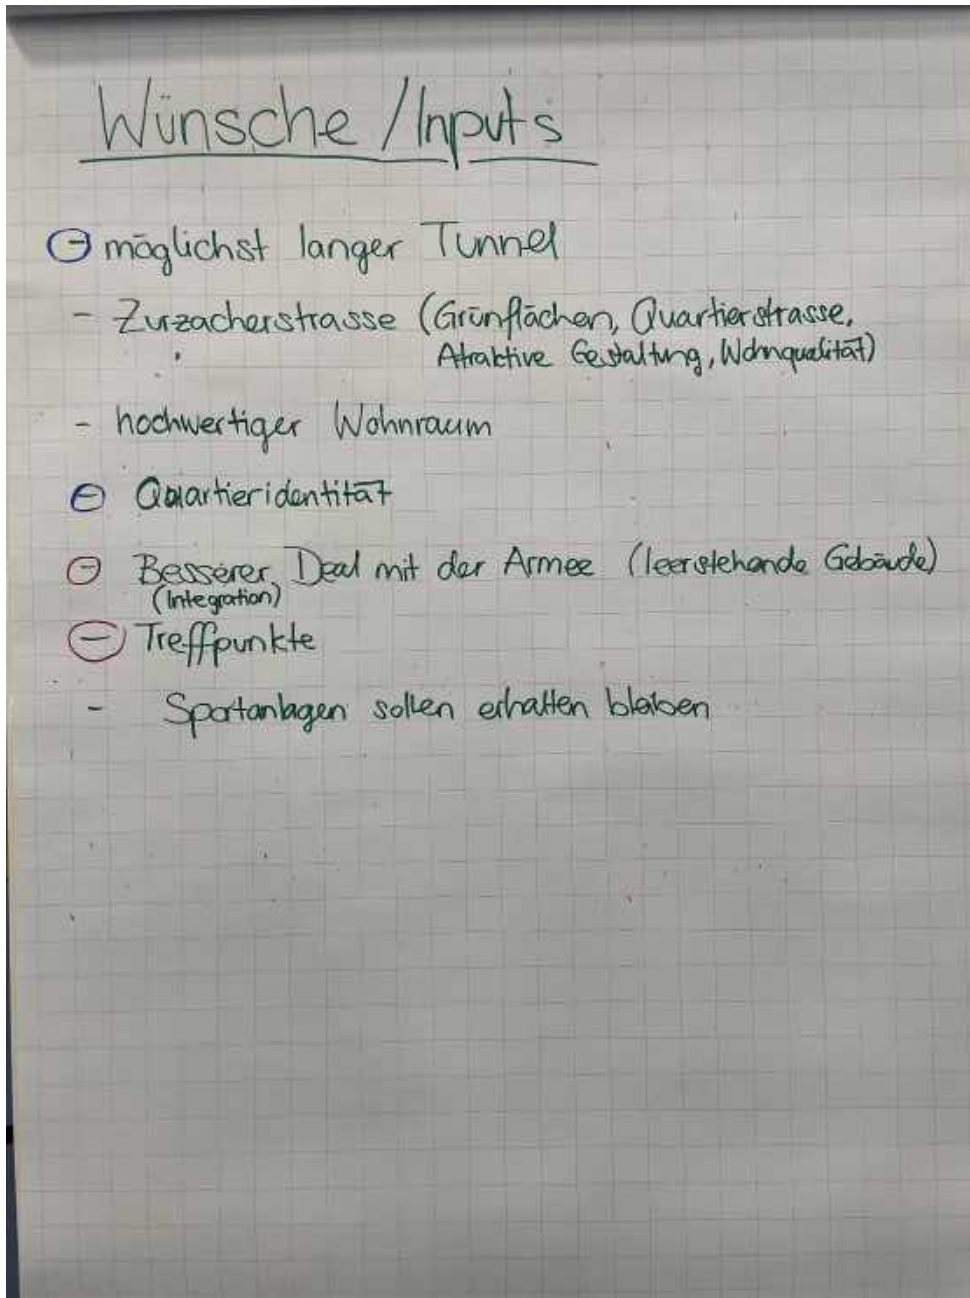 Wünsche / Inputs
- möglichst langer Tunnel
- Zurzacherstrasse (Grünflächen, Quartierstrasse,
Atraktive Gestaltung, Wohnqualität)
- hochwertiger Wohnraum
- Quartieridentität
- Besserer Deal mit der Armee (leerstehende Gebäude)
(Integration)
- Treffpunkte
- Sportanlagen sollen erhalten bleiben